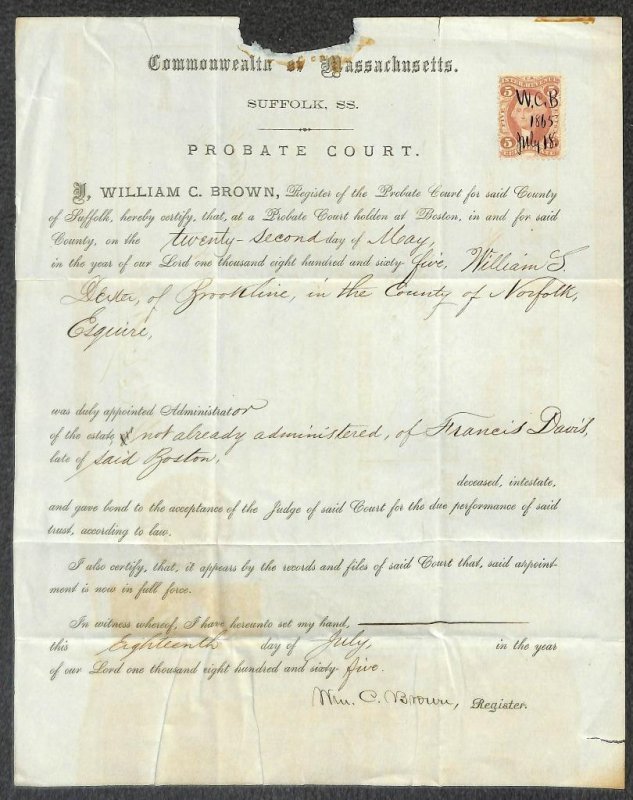 Commonwealth of Massachusetts.
SUFFOLK, SS.
PROBATE COURT.
5 5
W.C.B
1865
July 18.
I, WILLIAM C. BROWN, Register of the Probate Court for said County
of Suffolk, hereby certify, that, at a Probate Court holden at Boston, in and for said
County, on the twenty-second day of May,
in the year of our Lord one thousand eight hundred and sixty five, William S.
Dexter, of Brookline, in the County of Norfolk,
Esquire,
was duly appointed Administrator
of the estate not already administered, of Francis Davis,
late of said Boston,
deceased, intestate,
and gave bond to the acceptance of the Judge of said Court for the due performance of said
trust, according to law.
I also certify, that, it appears by the records and files of said Court that, said appoint-
ment is now in full force.
In witness whereof, I have hereunto set my hand,
this Eighteenth day of July, in the year
of our Lord one thousand eight hundred and sixty-five.
Wm. C. Brown, Register.